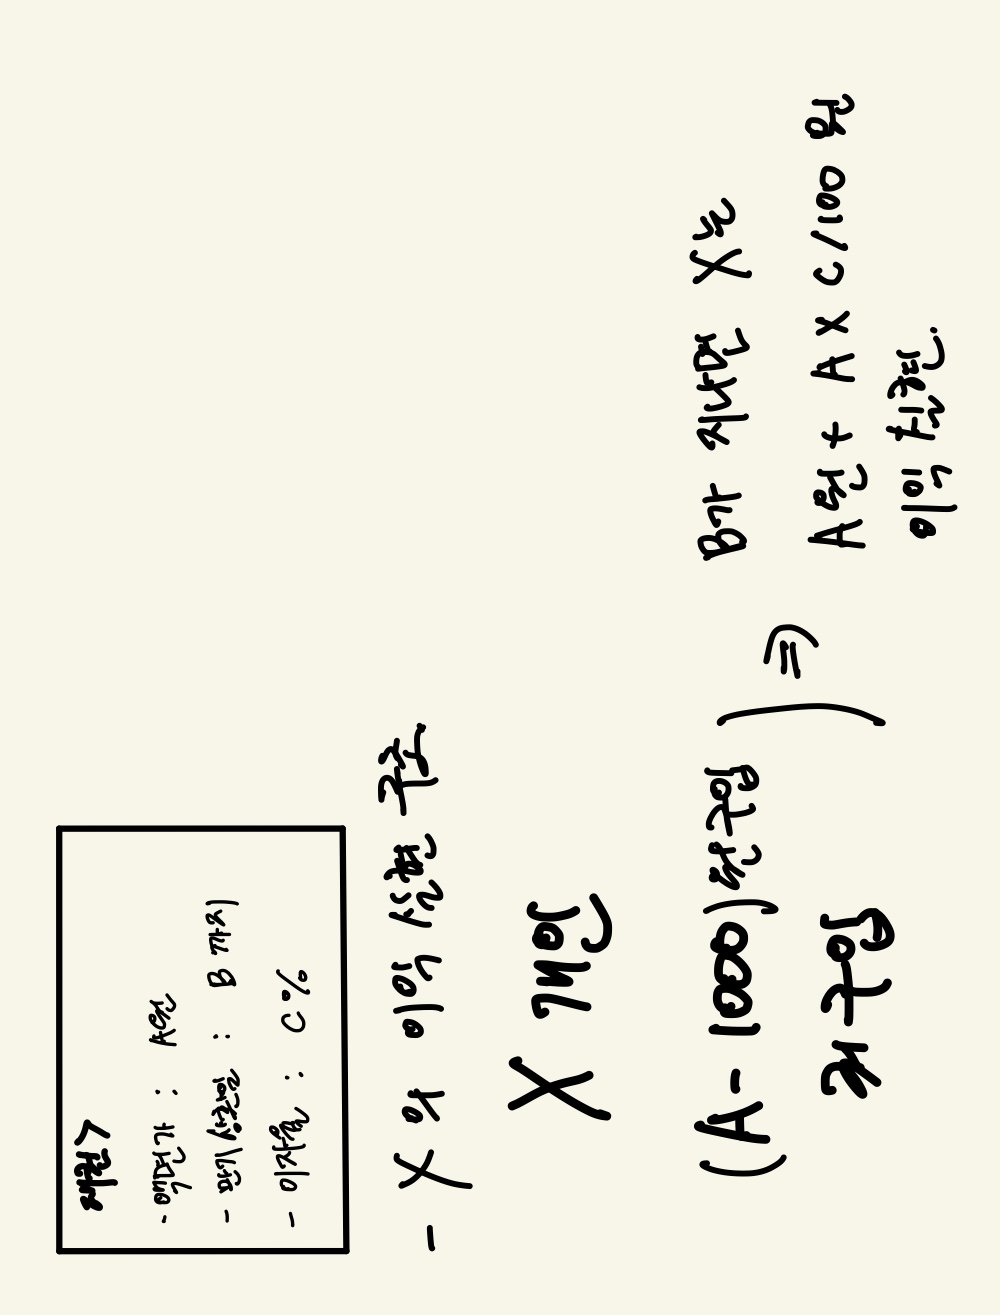 채권>
- 액면가 : A원
- 만기상환일 : B 까지
- 이자율 : C%
- X 의 이익 실현 구조
X 개인
(A - 1000)원 구입
구입
⇒
B가 지나면 X는
A원 + A X C/100 원
이익 실현.